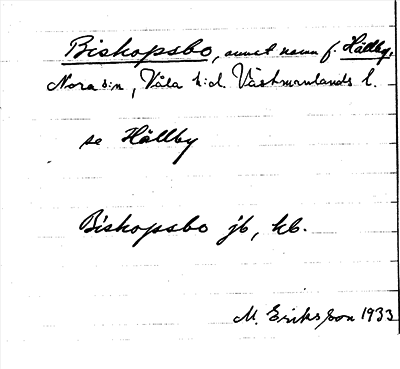 Biskopsbo, annat namn f. Hällby,
Nora s:n, Våla h:d. Västmanlands l.
se Hällby
Biskopsbo jb, kb.
M. Eriksson 1933